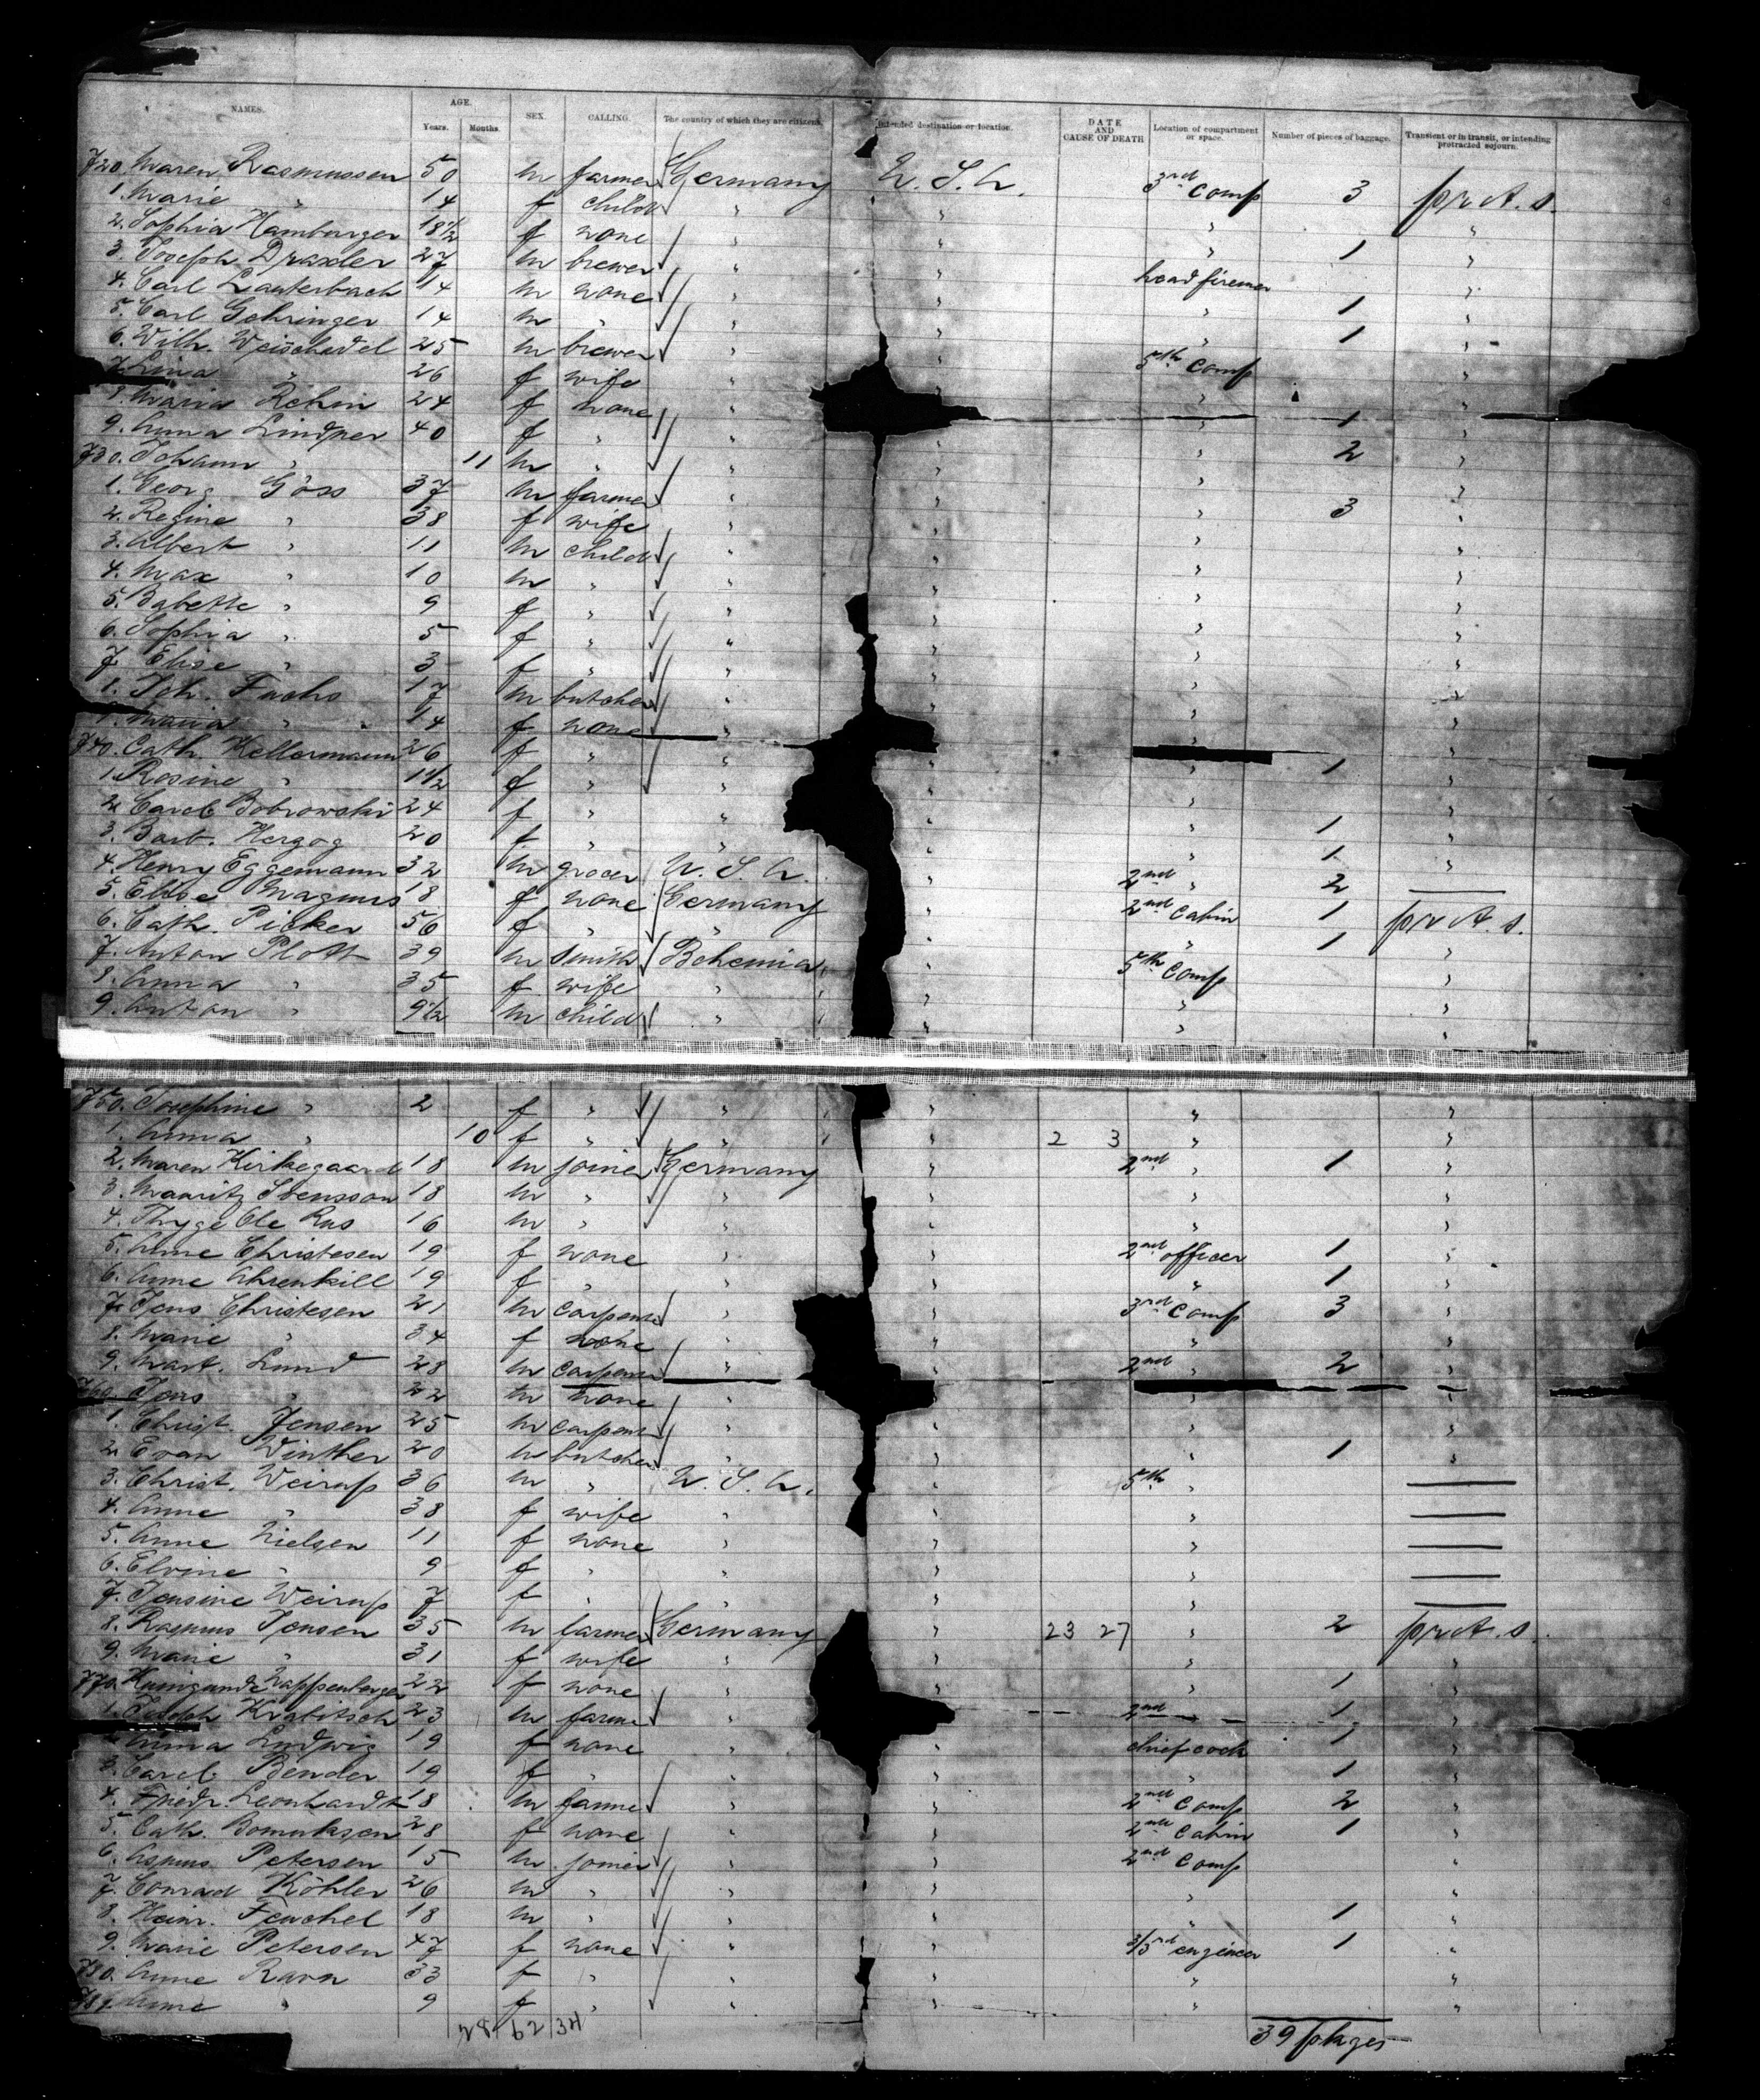 NAMES. AGE. Years. Months. SEX. CALLING. The country of which they are citizens. Intended destination or location. DATE AND CAUSE OF DEATH Location of compartment or space. Number of pieces of baggage. Transient or in transit, or intending protracted sojourn.
720. Maren Rasmussen 50 m farmer Germany U. S. A. 3rd comp 3 prot. s.
1. Marie " 14 f child " " " "
2. Sophia Hamburger 18 1/2 f none " " " 1 "
3. Joseph Draxler 27 m brewer " " head firemen "
4. Carl Lauterbach 14 m none " " " 1 "
5. Carl Gehringer 14 m " " " " 1 "
6. Wilh. Weischedel 25 m brewer " " 5th comp "
7. Lina " 26 f wife " " " "
8. Maria Rehm 24 f none " " " 1 "
9. Anna Lindner 40 f " " " " 2 "
730. Johann " 11 m " " " " "
1. Georg Göss 37 m farmer " " " 3 "
2. Regine " 38 f wife " " " "
3. Albert " 11 m child " " " "
4. Max " 10 m " " " " "
5. Babette " 9 f " " " " "
6. Sophia " 5 f " " " " "
7. Elise " 3 f " " " " "
8. Joh. Fuchs 17 m butcher " " " "
9. Maria " 14 f none " " " "
740. Cath. Kellermann 26 f " " " " 1 "
1. Rosine " 1 1/2 f " " " " "
2. Carol. Bobrowski 24 f " " " " 1 "
3. Barb. Herzog 20 f " " " " 1 "
4. Henry Eggemann 32 m grocer U. S. A. " 2nd " 2 —
5. Elise Magnus 18 f none Germany " 2nd cabin 1 prot. s.
6. Cath. Picker 56 f " " " " 1 "
7. Anton Plott 39 m smith Bohemia " 5th comp "
8. Anna " 35 f wife " " " "
9. Anton " 9 1/2 m child " " " "
750. Josephine " 2 f " " " " "
1. Anna " 10 f " " " 2 3 " "
2. Maren Kirkegaard 18 m joiner Germany " 2nd " 1 "
3. Mauritz Svensson 18 m " " " " "
4. Thyge Ole Rus 16 m " " " " "
5. Anne Christesen 19 f none " " 2nd officer 1 "
6. Anne Ahrenkill 19 f " " " " 1 "
7. Jens Christesen 21 m carpenter " " 3rd comp 3 "
8. Marie " 34 f none " " " "
9. Mart. Lund 28 m carpenter " " 2nd " 2 "
760. Jens " 22 m none " " "
1. Christ. Jensen 25 m carpent " " " "
2. Evan Winther 20 m butcher " " " 1 "
3. Christ. Weirup 36 m " U. S. A. " 5th " —
4. Anne " 38 f wife " " " —
5. Anne Nielsen 11 f none " " " —
6. Elvine " 9 f " " " " —
7. Jensine Weirup 7 f " " " " —
8. Rasmus Jensen 35 m farmer Germany " 23 27 " 2 prot. s.
9. Marie " 31 f wife " " " "
770. Kunigunde Nappenberger 22 f none " " " 1 "
1. Joseph Krabitsch 23 m farmer " " 2nd 1 "
Anna Ludwig 19 f none " " chief cook 1 "
3. Carol. Bender 19 f " " " " 1 "
4. Friedr. Leonhardt 18 m farmer " " 2nd comp 2 "
5. Cath. 28 f none " " 2nd cabin 1 "
6. Asmus Petersen 15 m joiner " " 2nd comp "
7. Conrad Köhler 26 m " " " " "
8. Heinr. Feuchel 18 m " " " " 1 "
9. Marie Petersen 47 f none " " 2/3rd engineer 1 "
780. Anne Ravn 33 f " " " " "
781. Anne " 9 f " " " " "
28 62 34 39 pkges